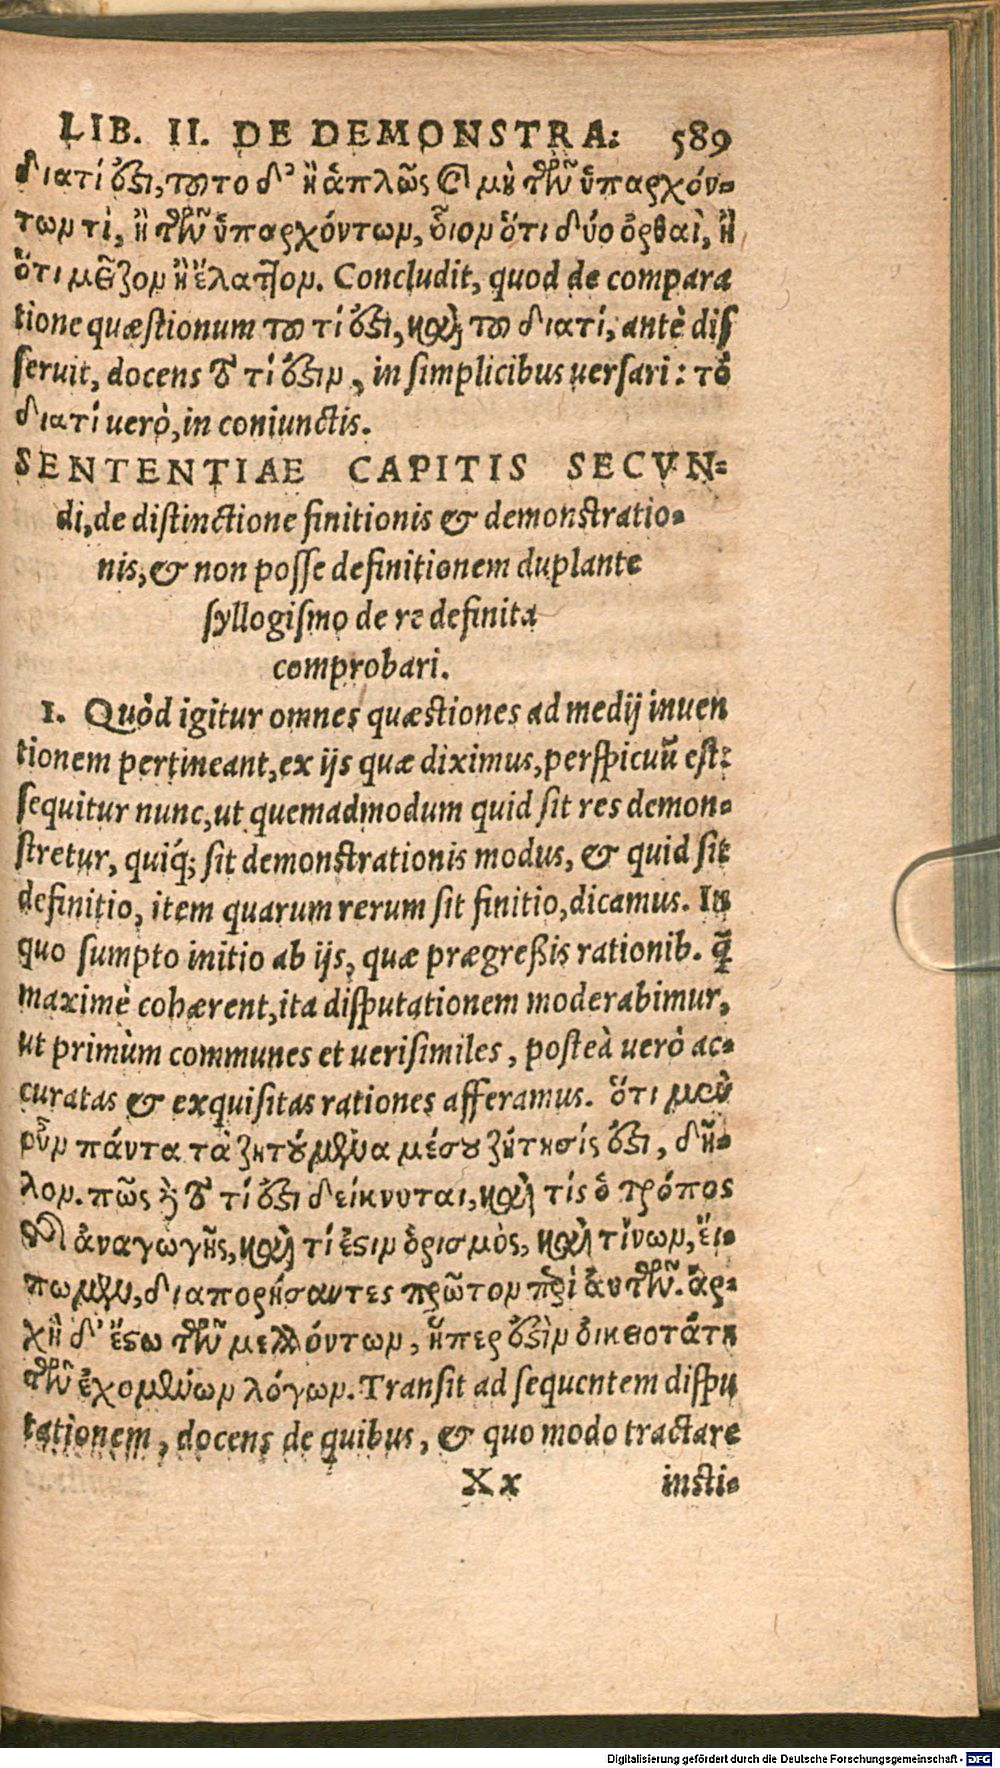 LIB. II. DE DEMONSTRA: 589
διατί ὅτι, τοῦτο δ' ἢ ἁπλῶς καὶ μὴ τῶν ὑπαρχόν-
των τὶ, ἢ τῶν ὑπαρχόντων, οἷον ὅτι δύο ὀρθαὶ, ἢ
ὅτι μεῖζον ἢ ἔλαττον. Concludit, quod de compara
tione quæstionum τὸ τί ὅτι, καὶ τὸ διατί, antè dis
seruit, docens τὸ τί ὅτιν, in simplicibus uersari: τὸ
διατί uerò, in coniunctis.
SENTENTIAE CAPITIS SECVN-
di, de distinctione finitionis & demonstratio-
nis, & non posse definitionem duplante
syllogismo de re definita
comprobari.
1. Quòd igitur omnes quæstiones ad medij inuen
tionem pertineant, ex ijs quæ diximus, perspicuũ est:
sequitur nunc, ut quemadmodum quid sit res demon-
stretur, quiq́; sit demonstrationis modus, & quid sit
definitio, item quarum rerum sit finitio, dicamus. In
quo sumpto initio ab ijs, quæ prægreßis rationib. q̃
maximè cohærent, ita disputationem moderabimur,
ut primùm communes et uerisimiles, posteà uerò ac-
curatas & exquisitas rationes afferamus. ὅτι μὲν
οὖν πάντα τὰ ζητούμενα μέσου ζήτησίς ἐστι, δῆ-
λον. πῶς δὲ τὸ τί ἐστι δείκνυται, καὶ τίς ὁ τρόπος
τῆς ἀναγωγῆς, καὶ τί ἐστιν ὁρισμὸς, καὶ τίνων, εἴ-
πωμεν, διαπορήσαντες πρῶτον περὶ αὐτῶν. ἀρ-
χὴ δ' ἔστω τῶν μελλόντων, ἥπερ ἐστὶν οἰκειοτάτη
τῶν ἐχομένων λόγων. Transit ad sequentem dispu
tationem, docens de quibus, & quo modo tractare
Xx insti-
Digitalisierung gefördert durch die Deutsche Forschungsgemeinschaft - DFG